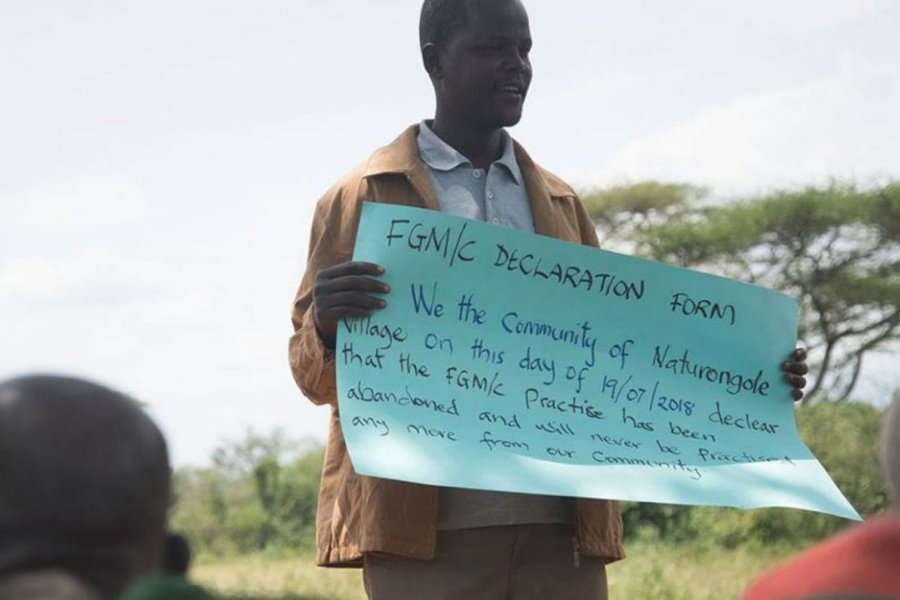 FGM/C DECLARATION FORM
We the Community of Naturongole
Village on this day of 19/07/2018 declear
that the FGM/C Practise has been
abandoned and will never be Practised
any more from our Community